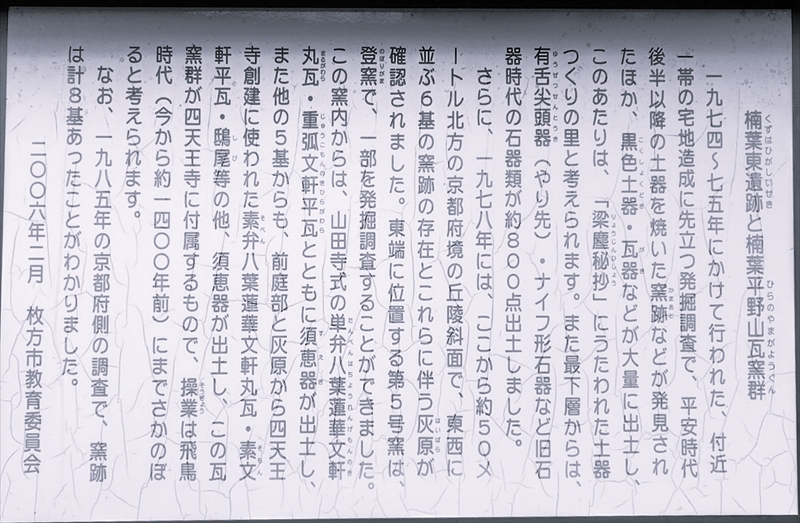 楠葉東遺跡と楠葉平野山瓦窯群
一九七四～七五年にかけて行われた、付近
一帯の宅地造成に先立つ発掘調査で、平安時代
後半以降の土器を焼いた窯跡などが発見され
たほか、黒色土器・瓦器などが大量に出土し、
このあたりは、「梁塵秘抄」にうたわれた土器
つくりの里と考えられます。また最下層からは、
有舌尖頭器（やり先）・ナイフ形石器など旧石
器時代の石器類が約８００点出土しました。
さらに、一九七八年には、ここから約５０メ
ートル北方の京都府境の丘陵斜面で、東西に
並ぶ６基の窯跡の存在とこれらに伴う灰原が
確認されました。東端に位置する第５号窯は、
登窯で、一部を発掘調査することができました。
この窯内からは、山田寺式の単弁八葉蓮華文軒
丸瓦・重弧文軒平瓦とともに須恵器が出土し、
また他の５基からも、前庭部と灰原から四天王
寺創建に使われた素弁八葉蓮華文軒丸瓦・素文
軒平瓦・鴟尾等の他、須恵器が出土し、この瓦
窯群が四天王寺に付属するもので、操業は飛鳥
時代（今から約一四〇〇年前）にまでさかのぼ
ると考えられます。
なお、一九八五年の京都府側の調査で、窯跡
は計８基あったことがわかりました。
二〇〇六年二月　枚方市教育委員会